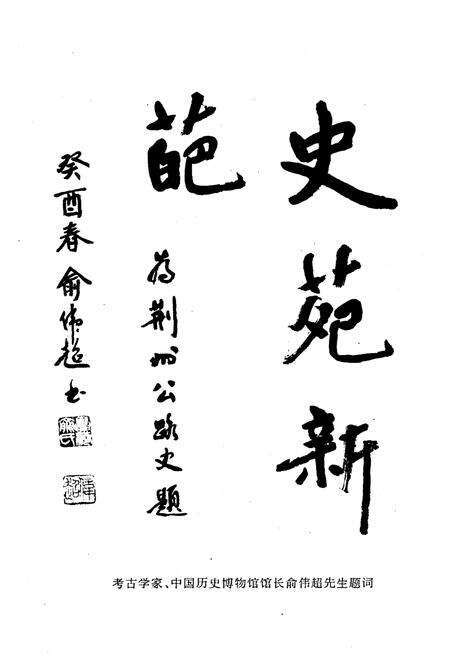 史苑新
葩
为荆州公路史题
癸酉春俞伟超书
考古学家、中国历史博物馆馆长俞伟超先生题词